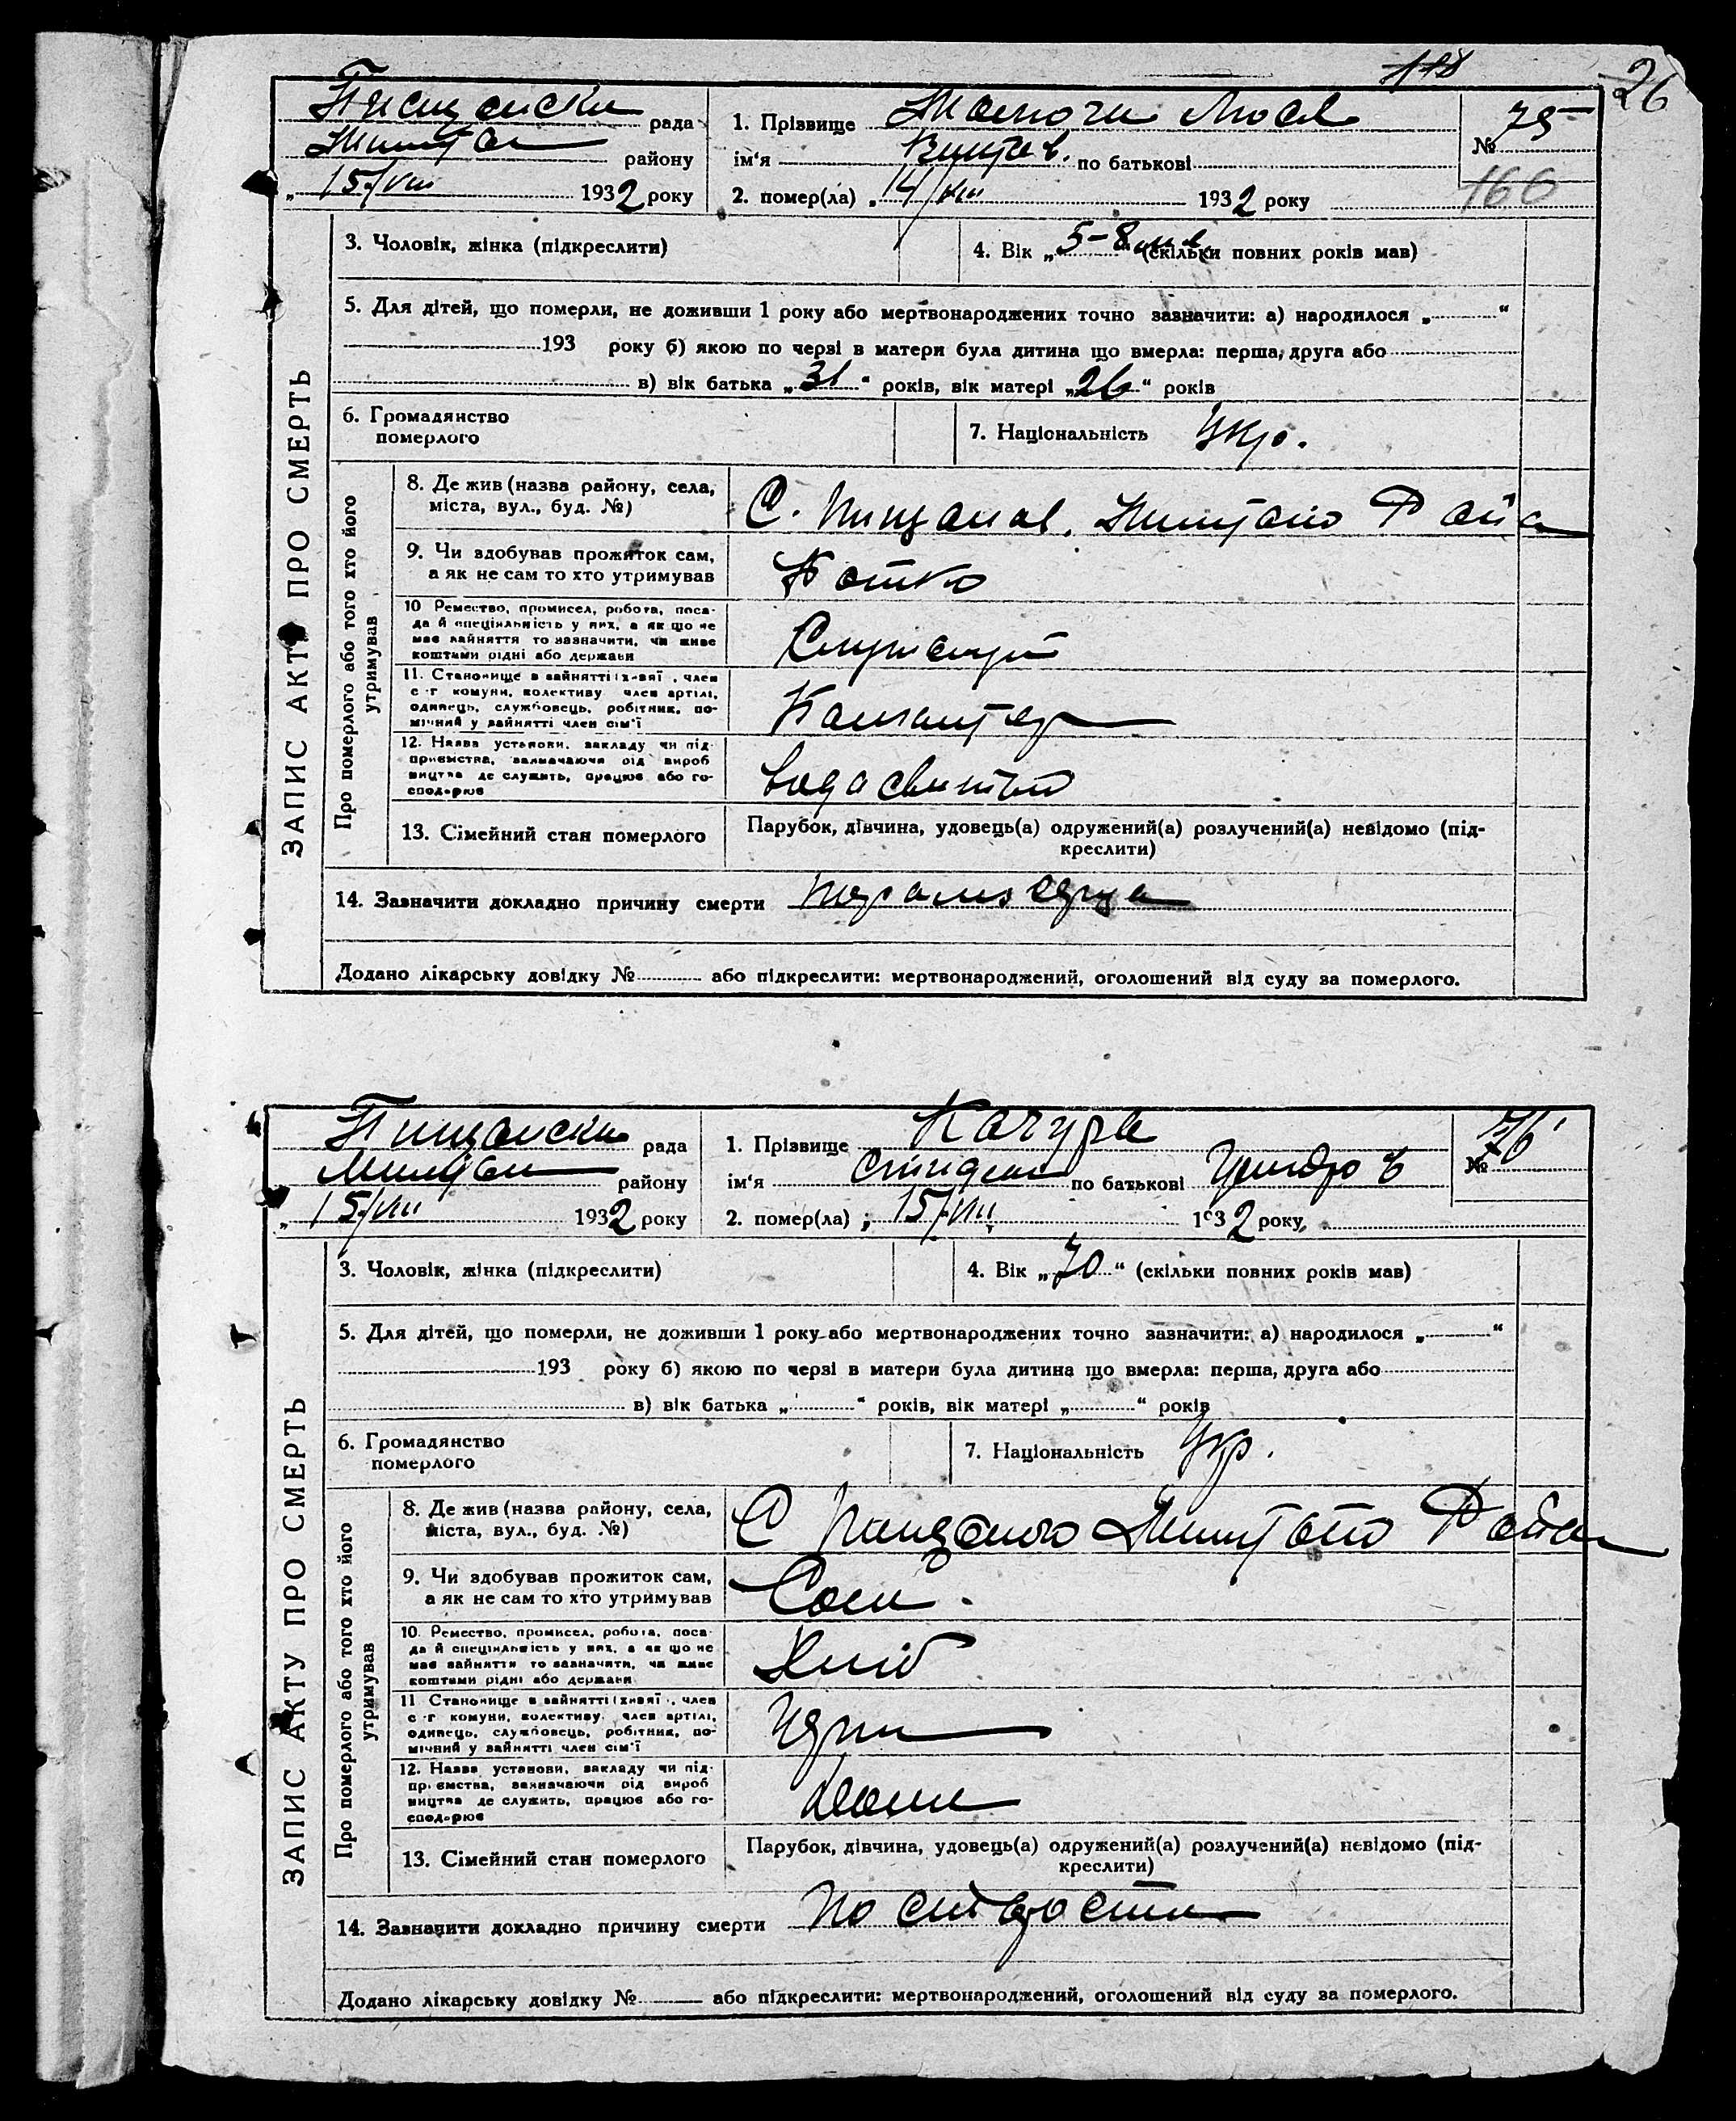 118
26
рада
1. Прізвище
№ 75
району
ім‘я по батькові
166
„ 15/VIII 1932 року
2. помер(ла) „ 14/VIII 1932 року
3. Чоловік, жінка (підкреслити)
4. Вік „ 5-8 “ (скільки повних років мав)
5. Для дітей, що померли, не доживши 1 року або мертвонароджених точно зазначити: а) народилося „ “
193 року б) якою по черзі в матери була дитина що вмерла: перша, друга або
в) вік батька „ 31 “ років, вік матері „ 26 “ років
6. Громадянство
померлого
7. Національність Укр.
ЗАПИС АКТУ ПРО СМЕРТЬ
Про померлого або того хто його
утримував
8. Де жив (назва району, села,
міста, вул., буд. №)
С.
9. Чи здобував прожиток сам,
а як не сам то хто утримував
Батко
10 Ремество, промисел, робота, поса-
да й спеціяльність у них, а як що не
має зайняття то зазначити, чи живе
коштами рідні або держави
11. Становище в зайнятті (хазяї, член
с-г комуни, колективу член артілі,
одинець, службовець, робітник, по-
мічний у зайнятті член сім‘ї
12. Назва установи, закладу чи під-
приємства, зазначаючи рід вироб
ництва де служить, працює або го-
сподарює
13. Сімейний стан померлого
Парубок, дівчина, удовець(а) одружений(а) розлучений(а) невідомо (під-
креслити)
14. Зазначити докладно причину смерти
Додано лікарську довідку № або підкреслити: мертвонароджений, оголошений від суду за померлого.
рада
1. Прізвище Качура
№ 76
району
ім‘я по батькові
„ 15/VIII 1932 року
2. помер(ла) „ 15/VIII 1932 року
3. Чоловік, жінка (підкреслити)
4. Вік „ 70 “ (скільки повних років мав)
5. Для дітей, що померли, не доживши 1 року або мертвонароджених точно зазначити: а) народилося „ “
193 року б) якою по черзі в матери була дитина що вмерла: перша, друга або
в) вік батька „ “ років, вік матері „ “ років
6. Громадянство
померлого
7. Національність Укр.
ЗАПИС АКТУ ПРО СМЕРТЬ
Про померлого або того хто його
утримував
8. Де жив (назва району, села,
міста, вул., буд. №)
С
9. Чи здобував прожиток сам,
а як не сам то хто утримував
Сам.
10. Ремество, промисел, робота, поса-
да й спеціяльність у них, а як що не
має зайняття то зазначити, чи живе
коштами рідні або держави
Хліб
11 Становище в зайнятті (хазяї, член
с-г комуни, колективу, член артілі,
одинець, службовець, робітник, по-
мічний у зайнятті член сім‘ї
12. Назва установи, закладу чи під-
приємства, зазначаючи рід вироб
ництва де служить, працює або го-
сподарює
13. Сімейний стан померлого
Парубок, дівчина, удовець(а) одружений(а) розлучений(а) невідомо (під-
креслити)
14. Зазначити докладно причину смерти По старости
Додано лікарську довідку № або підкреслити: мертвонароджений, оголошений від суду за померлого.